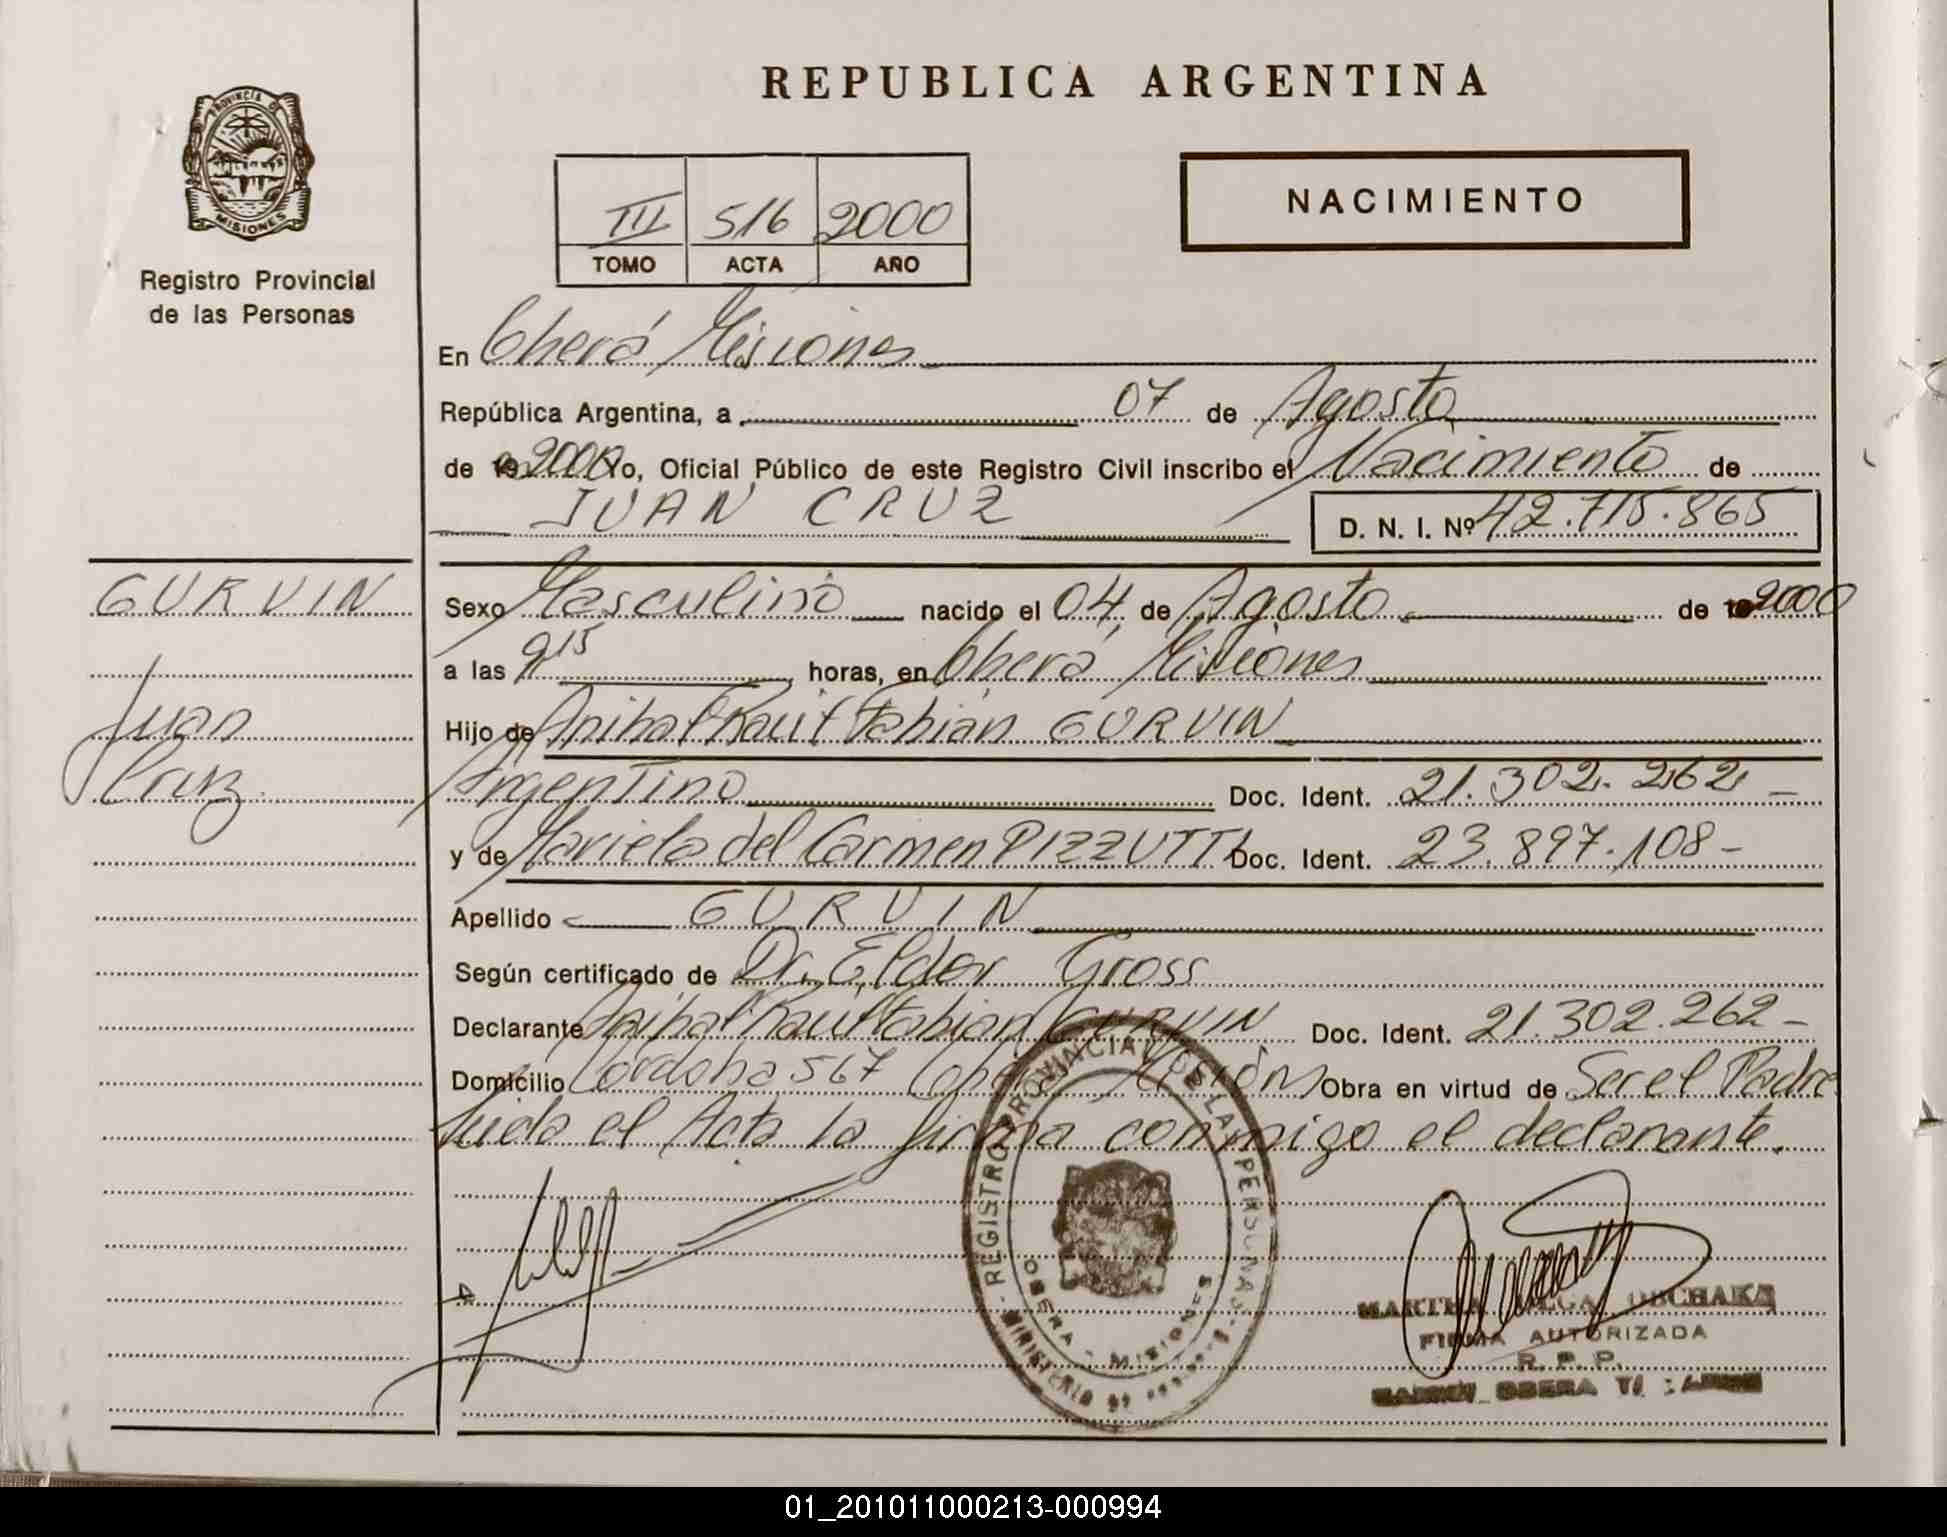 PROVINCIA DE
MISIONES
Registro Provincial
de las Personas
GURVIN
Juan
Cruz
REPUBLICA ARGENTINA
III 516 2000
TOMO ACTA AÑO
NACIMIENTO
En Oberá Misiones
República Argentina, a 07 de Agosto
de 2000 Yo, Oficial Público de este Registro Civil inscribo el Nacimiento de
JUAN CRUZ D. N. I. Nº 42.715.865
Sexo Masculino nacido el 04 de Agosto de 2000
a las 9 15 horas, en Oberá Misiones
Hijo de Anibal Raul Fabián GURVIN
Argentino Doc. Ident. 21.302.262 -
y de Mariela del Carmen PIZZUTTI Doc. Ident. 23.897.108 -
Apellido GURVIN
Según certificado de Dr. Eldor Gross
Declarante Anibal Raul Fabian GURVIN Doc. Ident. 21.302.262 -
Domicilio Córdoba 567 Oberá Misiones Obra en virtud de Ser el Padre
Leida el Acta la firma conmigo el declarante.
REGISTRO PROVINCIAL DE LAS PERSONAS
MINISTERIO DE
OBERA - MISIONES
MARTHA OLGA
FIRMA AUTORIZADA
R. P. P.
OBERA
01_201011000213-000994